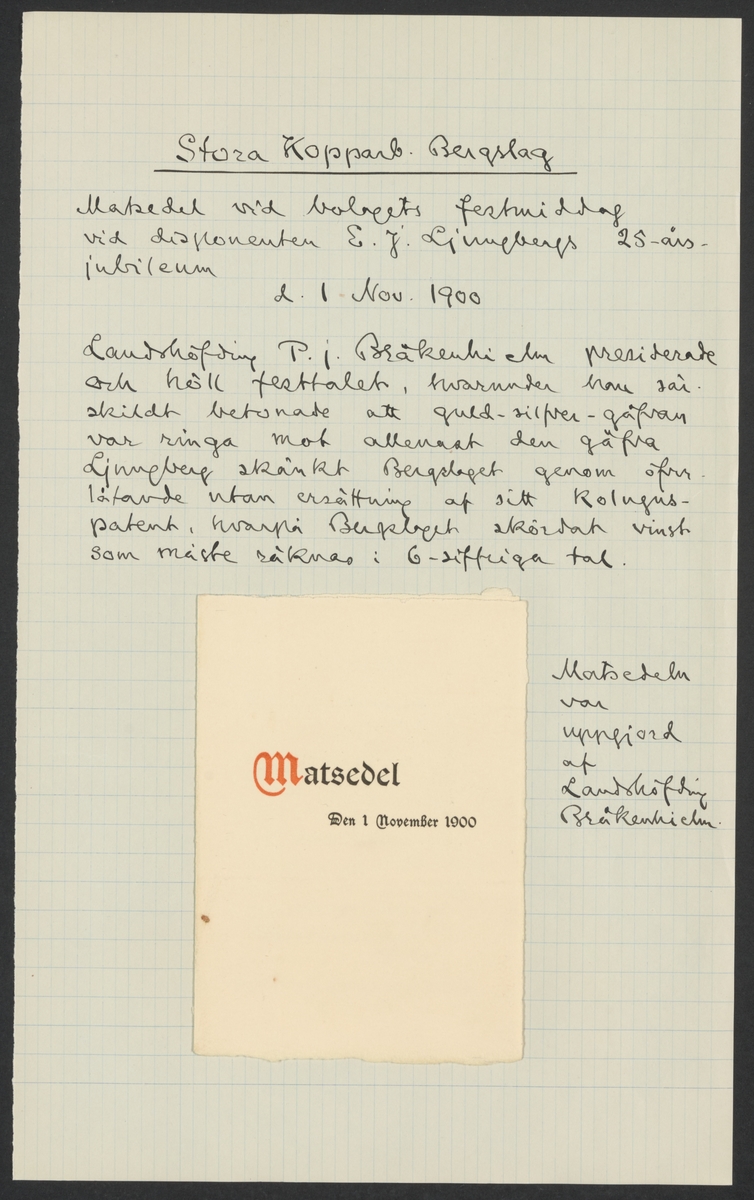 Stora Kopparb. Bergslag
Matsedel vid bolagets festmiddag
vid disponenten E. J. Ljungbergs 25-års-
jubileum
d. 1 Nov. 1900
Landshöfding P. j. Bråkenhielm presiderade
och höll festtalet, hvarunder han sär-
skildt betonade att guld-silfver-gåfvan
var ringa mot allenast den gåfva
Ljungberg skänkt Bergslaget genom öfver-
låtande utan ersättning af sitt Kolugns-
patent, hvarpå Bergslaget skördat vinst
som måste räknas i 6-siffriga tal.
Matsedel
Den 1 November 1900
Matsedeln
var
uppgjord
af
Landshöfding
Bråkenhielm.